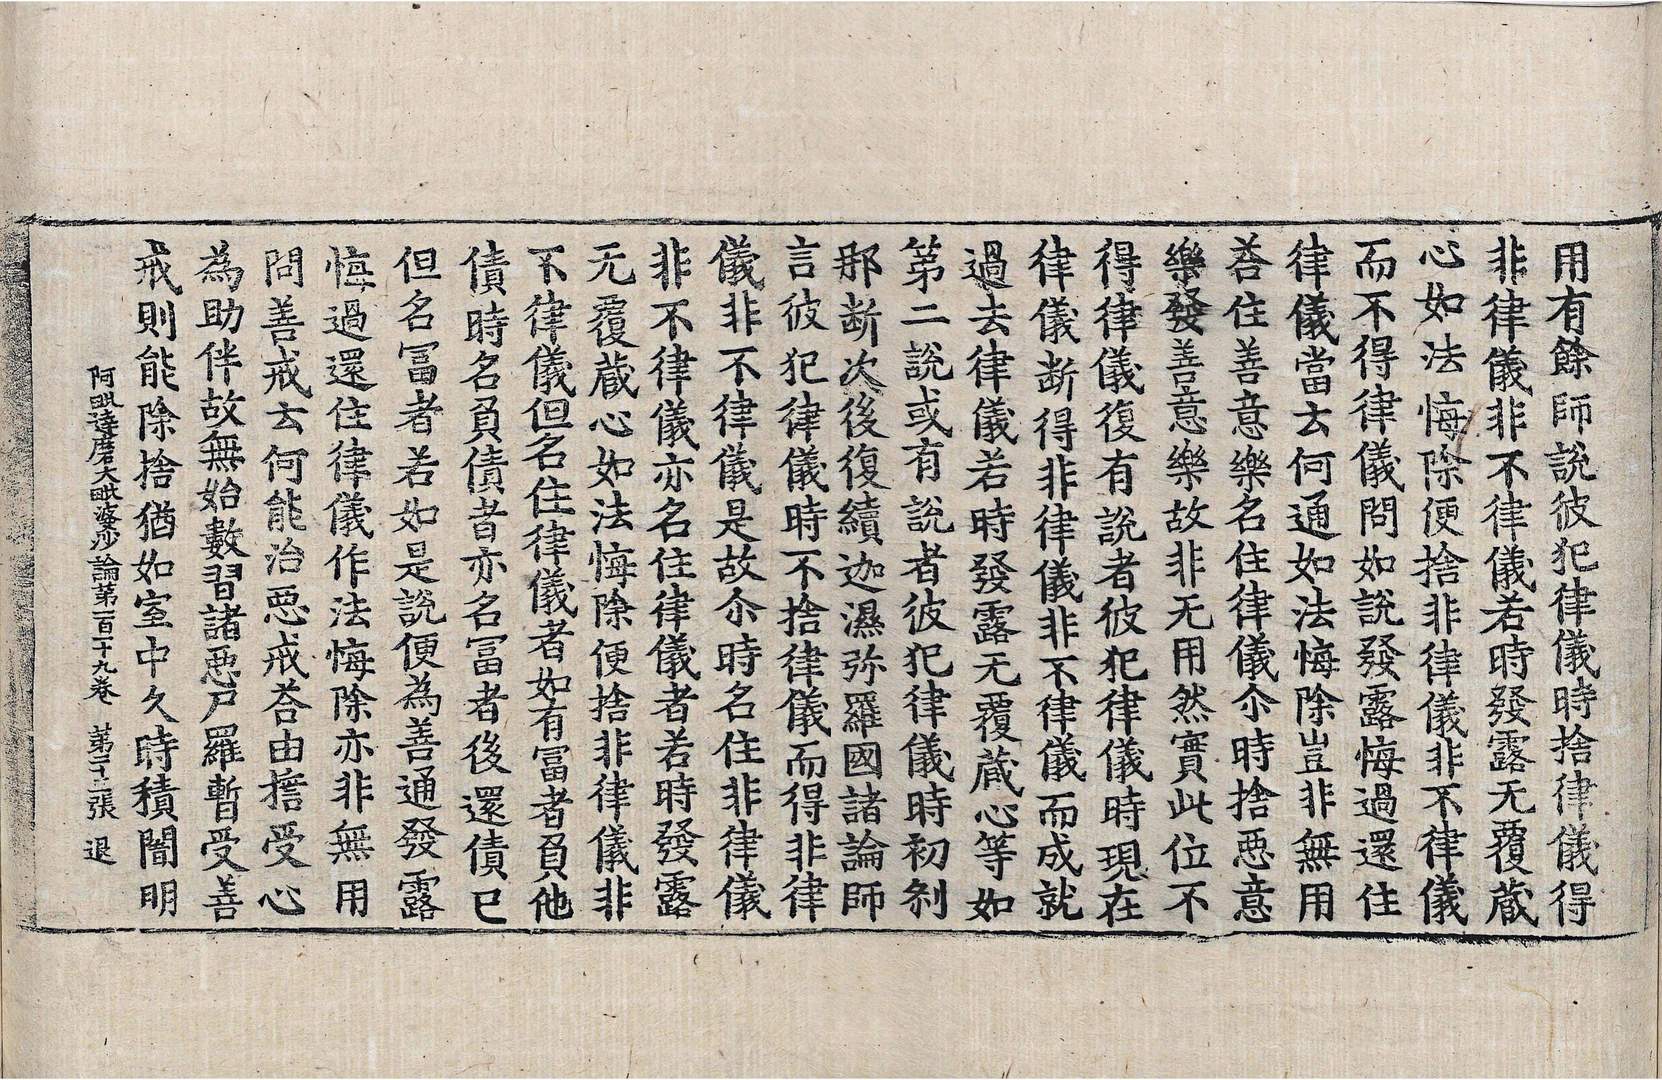 用有餘師說彼犯律儀時捨律儀得
非律儀非不律儀若時發露无覆蔵
心如法悔除便捨非律儀非不律儀
而不得律儀問如說發露悔過還住
律儀當云何通如法悔除豈非無用
荅住善意樂名住律儀尒時捨惡意
樂發善意樂故非无用然實此位不
得律儀復有說者彼犯律儀時現在
律儀斷得非律儀非不律儀而成就
過去律儀若時發露无覆蔵心等如
第二說或有說者彼犯律儀時初剎
那斷次後復續迦濕弥羅國諸論師
言彼犯律儀時不捨律儀而得非律
儀非不律儀是故尒時名住非律儀
非不律儀亦名住律儀者若時發露
无覆蔵心如法悔除便捨非律儀非
不律儀但名住律儀者如有冨者負他
債時名負債者亦名冨者後還債已
但名冨者若如是說便為善通發露
悔過還住律儀作法悔除亦非無用
問善戒云何能治惡戒荅由擔受心
為助伴故無始數習諸惡尸羅暫受善
戒則能除捨猶如室中久時積闇明
阿毗達磨大毗婆沙論第一百十九卷　第二十二張　退